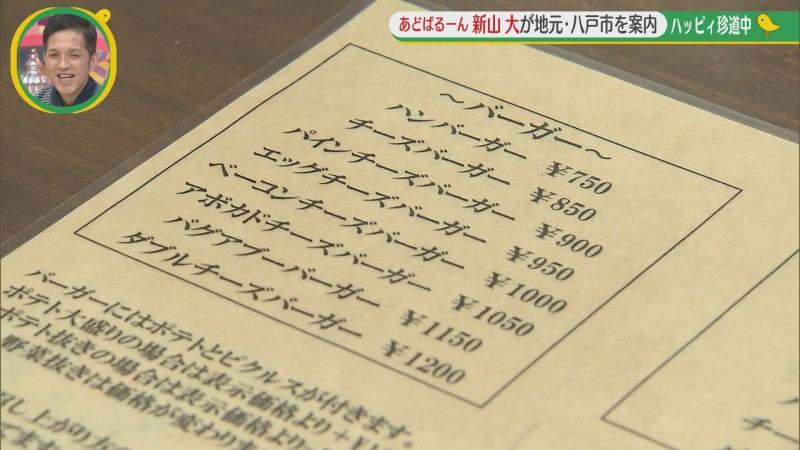 あどばるーん 新山 大が地元・八戸市を案内
ハッピィ珍道中
～バーガー～
ハンバーガー ¥750
チーズバーガー ¥850
パインチーズバーガー ¥900
エッグチーズバーガー ¥950
ベーコンチーズバーガー ¥1000
アボカドチーズバーガー ¥1050
バグアブーバーガー ¥1150
ダブルチーズバーガー ¥1200
バーガーにはポテトとピクルスが付きます。
ポテト大盛りの場合は表示価格より＋¥1
ポテト抜きの場合は表示価格より
野菜抜きは価格が変わりま
召し上がり方の
バ
チーズ